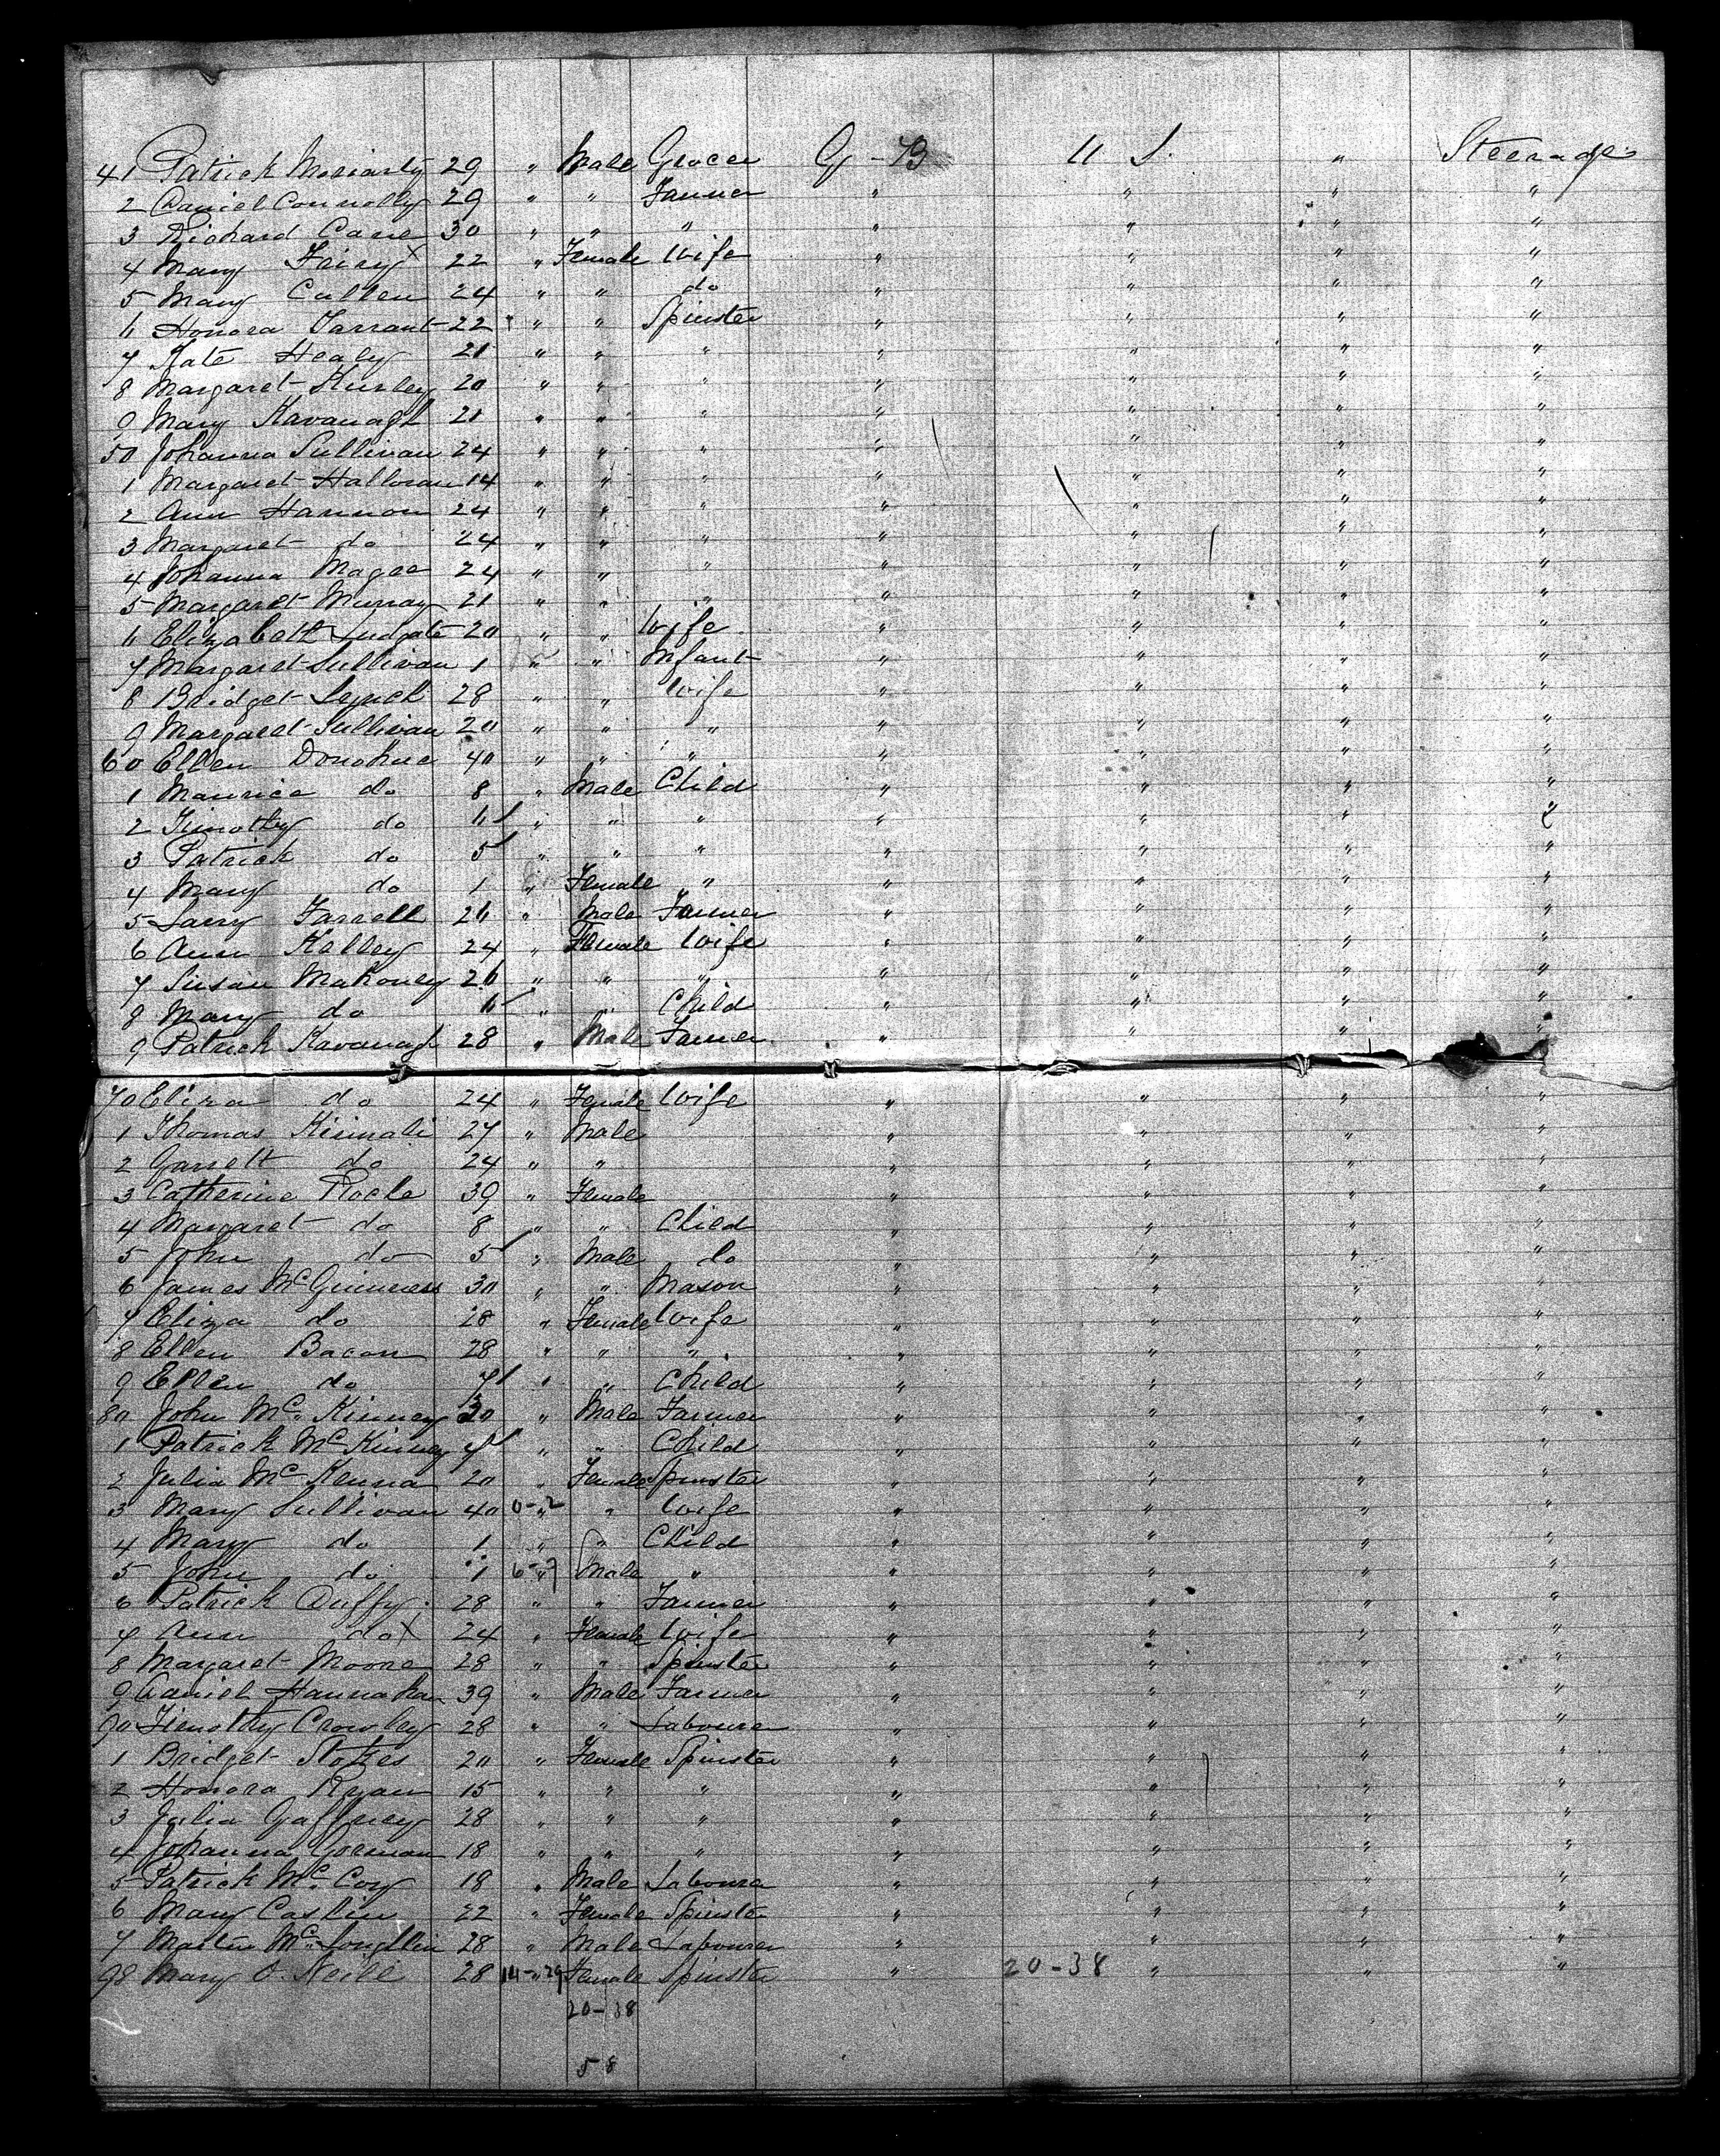 41 Patrick Moriarty 29 " Male Grocer G-B U S. " Steerage
2 Daniel Connolly 29 " " Farmer " " " "
3 Richard Cane 30 " " " " " " "
4 Mary X 22 " Female Wife " " " "
5 Mary Cullen 24 " " do " " " "
6 Honora Tarrant 22 " " Spinster " " " "
7 Kate Healy 21 " " " " " " "
8 Margaret Hurley 20 " " " " " " "
9 Mary Kavanagh 21 " " " " " " "
50 Johanna Sullivan 24 " " " " " " "
1 Margaret Halloran 14 " " " " " " "
2 Ann Hannon 24 " " " " " " "
3 Margaret do 24 " " " " " " "
4 Johanna Magee 24 " " " " " " "
5 Margaret Murray 21 " " " " " " "
6 Elizabeth Ludgate 20 " " Wife " " " "
7 Margaret Sullivan 1 " " Infant " " " "
8 Bridget Lynch 28 " " Wife " " " "
9 Margaret Sullivan 20 " " " " " " "
60 Ellen Donohue 40 " " " " " " "
1 Maurice do 8 " Male Child " " " "
2 Timothy do 6 " " " " " " "
3 Patrick do 5 " " " " " " "
4 Mary do 1 " Female " " " " "
5 Larry Farrell 26 " Male Farmer " " " "
6 Ann Kelley 24 " Female Wife " " " "
7 Susan Mahoney 26 " " " " " " "
8 Mary do 6 " " Child " " " "
9 Patrick Kavanagh 28 " Male Farmer " " " "
70 Eliza do 24 " Female Wife " " " "
1 Thomas 27 " Male " " " "
2 Garrett do 24 " " " " " "
3 Catherine Roche 39 " Female " " " "
4 Margaret do 8 " " Child " " " "
5 John do 5 " Male do " " " "
6 James McGuinness 30 " " Mason " " " "
7 Eliza do 28 " Female Wife " " " "
8 Ellen Bacon 28 " " " " " " "
9 Ellen do 7 " " Child " " " "
80 John McKinney 30 " Male Farmer " " " "
1 Patrick McKinney 7 " " Child " " " "
2 Julia McKenna 20 " Female Spinster " " " "
3 Mary Sullivan 40 0-2 " " Wife " " " "
4 Mary do 1 " " Child " " " "
5 John do 1 " Male " " " " "
6 Patrick Duffy 28 " " Farmer " " " "
7 Ann do X 24 " Female Wife " " " "
8 Margaret Moore 28 " " Spinster " " " "
9 Daniel Hannahan 39 " Male Farmer " " " "
90 Timothy Crowley 28 " " Labourer " " " "
1 Bridget Stokes 20 " Female Spinster " " " "
2 Honora Ryan 15 " " " " " " "
3 Julia Gaffney 28 " " " " " " "
4 Johanna Gorman 18 " " " " " " "
5 Patrick McCoy 18 " Male Laboura " " " "
6 Mary Caslin 22 " Female Spinster " " " "
7 Martin McLoughlin 28 " Male Labourer " " " "
98 Mary O. Neill 28 14-29 " Female Spinster " 20-38 " " "
20-38
58